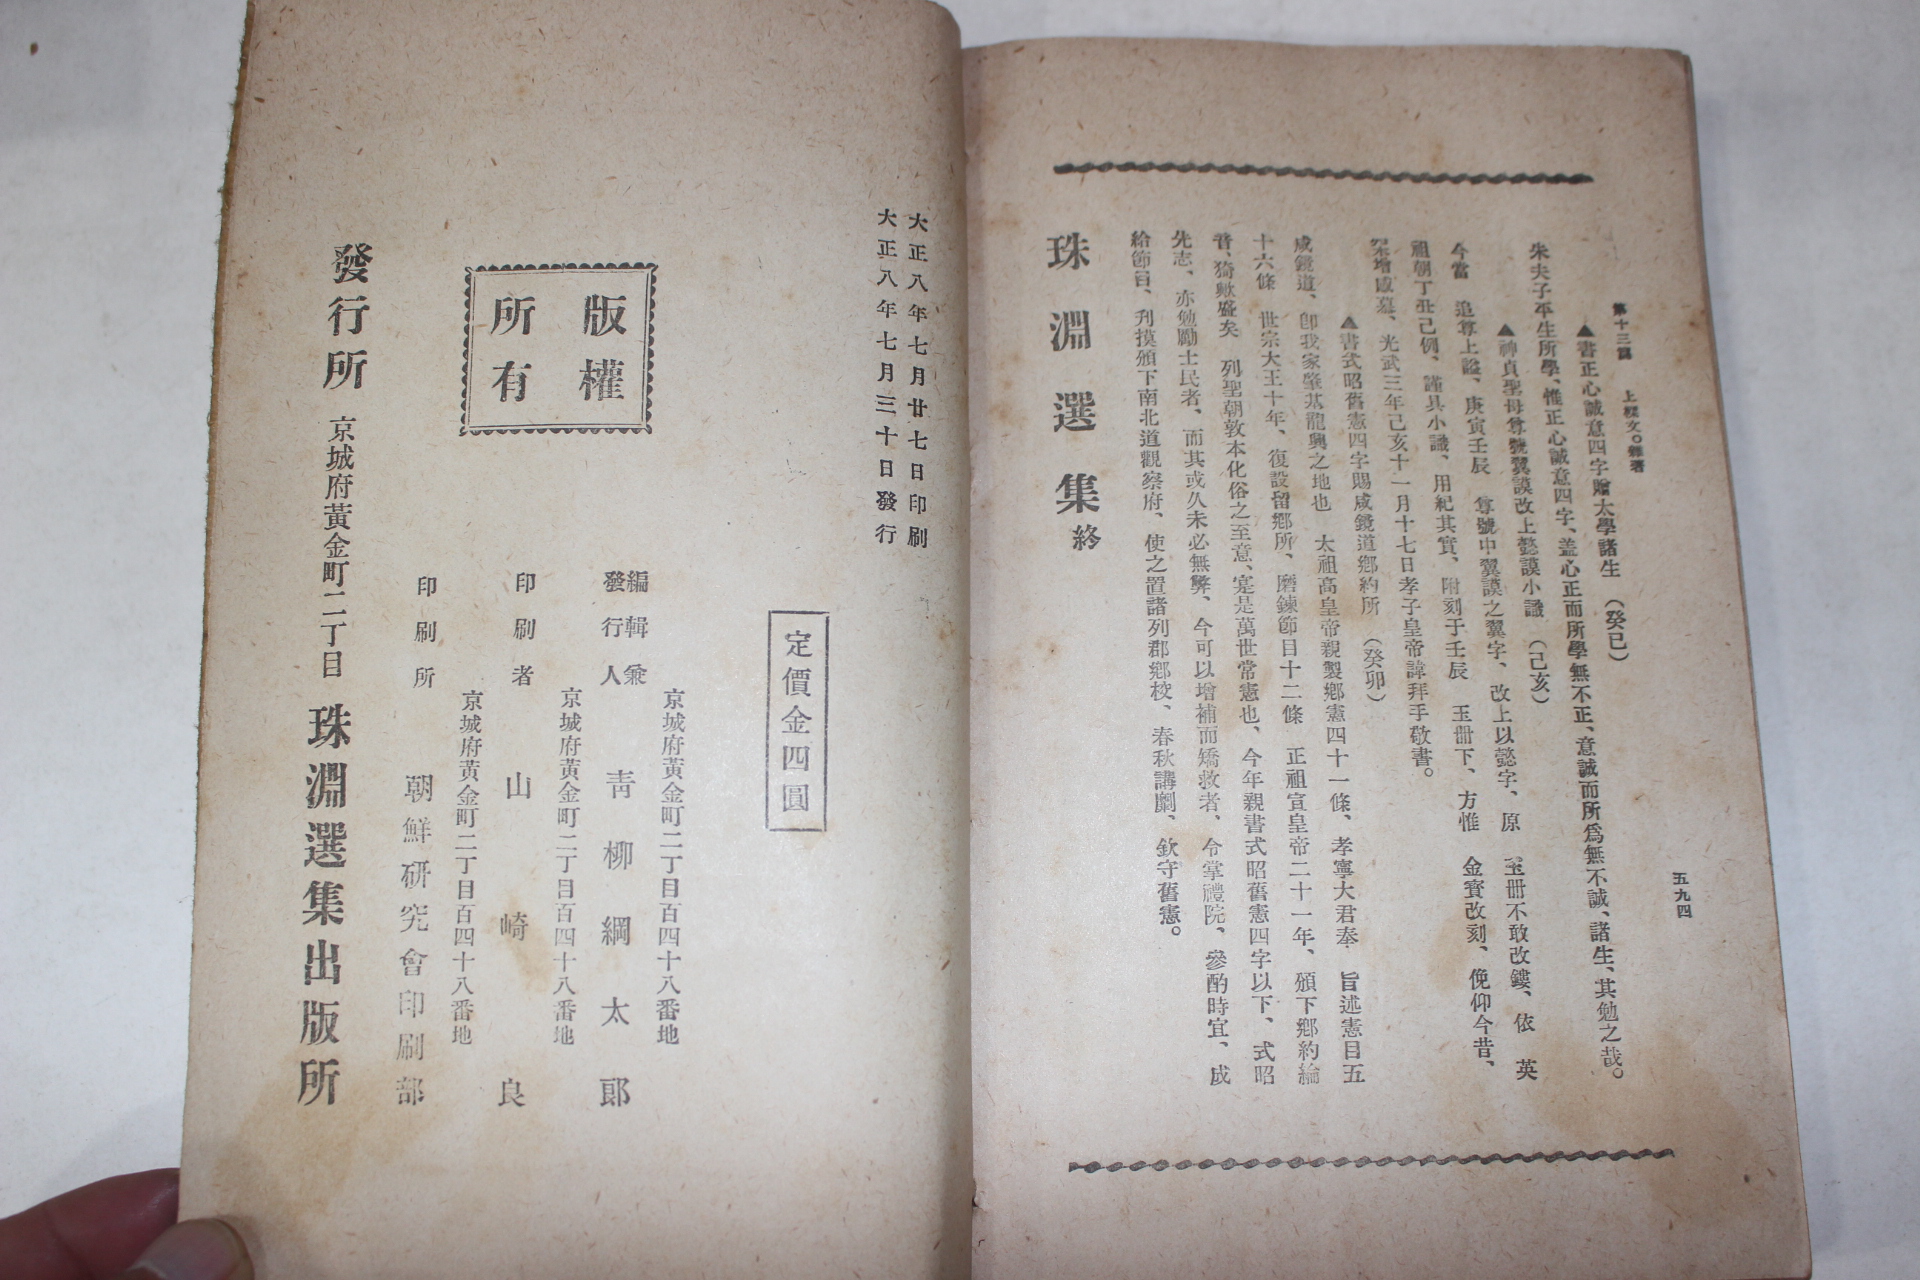 第十三編　上樑文○雜著
五九四
▲書正心誠意四字贈太學諸生　（癸巳）
朱夫子平生所學、惟正心誠意四字、盖心正而所學無不正、意誠而所爲無不誠、諸生、其勉之哉。
▲神貞聖母尊號翼謨改上懿謨小識　（己亥）
今當　追尊上謚、庚寅壬辰　尊號中翼謨之翼字、改上以懿字、原　玉冊不敢改鏤、依　英
祖朝丁丑己例、謹具小識、用紀其實、附刻于壬辰　玉冊下、方惟　金寶改刻、俛仰今昔、
采增慼慕、光武三年己亥十一月十七日孝子皇帝諱拜手敬書。
▲書式昭舊憲四字賜咸鏡道鄕約所　（癸卯）
咸鏡道、卽我家肇基龍興之地也　太祖高皇帝親製鄕憲四十一條、孝寧大君奉　旨述憲目五
十六條　世宗大王十年、復設留鄕所、磨鍊節目十二條　正祖宣皇帝二十一年、頒下鄕約綸
音、猗歟盛矣　列聖朝敦本化俗之至意、寔是萬世常憲也、今年親書式昭舊憲四字以下、式昭
先志、亦勉勵士民者、而其或久未必無弊、今可以增補而矯救者、令掌禮院、參酌時宜、成
給節目、刋摸頒下南北道觀察府、使之置諸列郡鄕校、春秋講劘、欽守舊憲。
珠淵選集終
大正八年七月廿七日印刷
大正八年七月三十日發行
定價金四圓
版權
所有
京城府黃金町二丁目百四十八番地
編輯兼
發行人　靑柳綱太郞
京城府黃金町二丁目百四十八番地
印刷者　山崎良
京城府黃金町二丁目百四十八番地
印刷所　朝鮮研究會印刷部
發行所　京城府黃金町二丁目　珠淵選集出版所